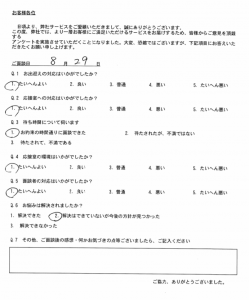 お客様各位
日頃より、弊社サービスをご愛顧いただきまして、誠にありがとうございます。
この度、弊社では、より一層お客様にご満足いただけるサービスをお届けするため、皆様からご意見を頂戴する
アンケートを実施させていただくことになりました。大変、恐縮ではございますが、下記項目にお答えいた
だきたくお願い申し上げます。
ご面談日 8月 29日
Q1 お出迎えの対応はいかがでしたか?
1.たいへんよい 2.良い 3.普通 4.悪い 5.たいへん悪い
Q2 応接室への対応はいかがでしたか?
1.たいへんよい 2.良い 3.普通 4.悪い 5.たいへん悪い
Q3 待ち時間について伺います
1.お約束の時間通りに面談できた 2.待たされたが、不満ではない
3.待たされて、不満である
Q4 応接室の環境はいかがでしたか?
1.たいへんよい 2.良い 3.普通 4.悪い 5.たいへん悪い
Q5 面談者の対応はいかがでしたか?
1.たいへんよい 2.良い 3.普通 4.悪い 5.たいへん悪い
Q6 お悩みは解決されましたか?
1.解決できた 2.解決はできていないが今後の方針が見つかった
3.解決できなかった
Q7 その他、ご面談後の感想・何かお気づきの点等ございましたら、ご記入ください
ご協力、ありがとうございました。